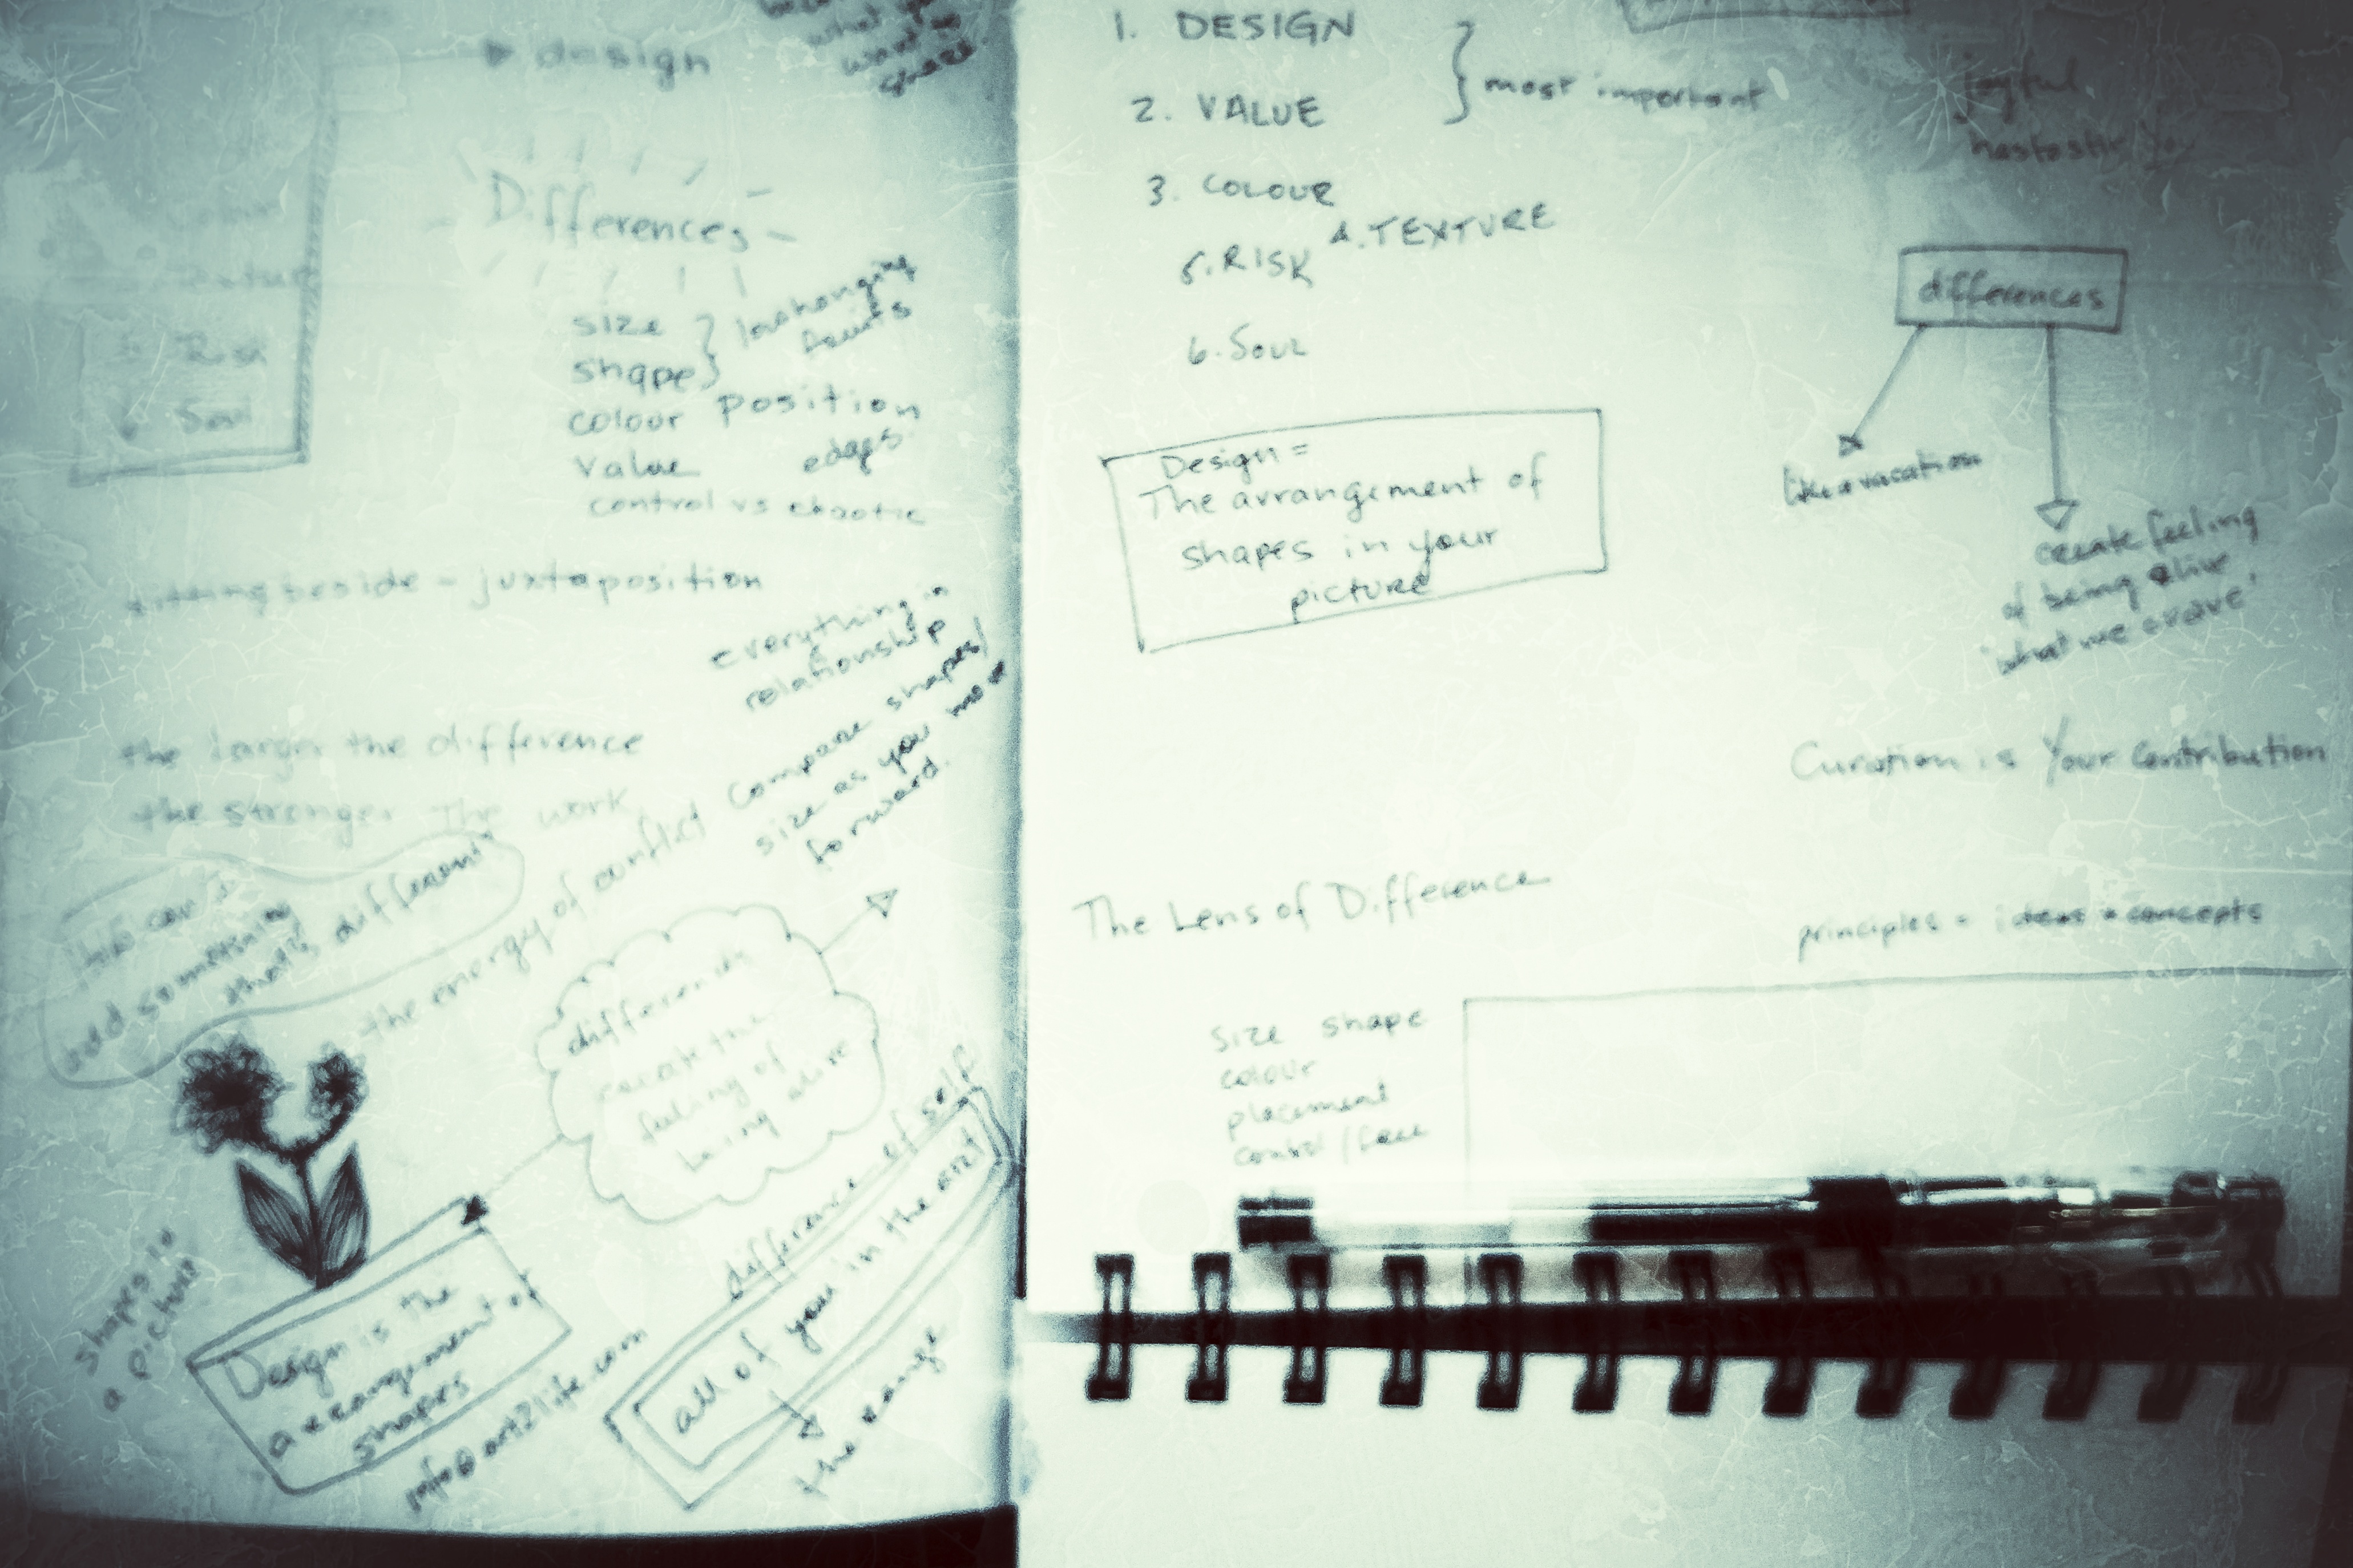 design
what
want
space
Differences
size
shape
colour position
value edges
control vs chaotic
Texture
5 Risk
6 Soul
sitting beside - juxtaposition
everything in
relationship
compare shapes/
size as you move
forward.
the larger the difference
the stronger the work
add something
that's different
the energy of conflict
differences
create the
feeling of
being alive
difference of self
all of you in the art
the range
shapes in
a picture
Design is the
arrangement of
shapes
info@art2life.com
1. DESIGN
2. VALUE
most important
3. COLOUR
4. TEXTURE
5. RISK
6. SOUL
joyful
differences
like a vacation
create feeling
of being alive
'what we crave'
Design =
The arrangement of
shapes in your
picture
Curation is Your Contribution
The Lens of Difference
principles = ideas + concepts
size shape
colour
placement
control / free